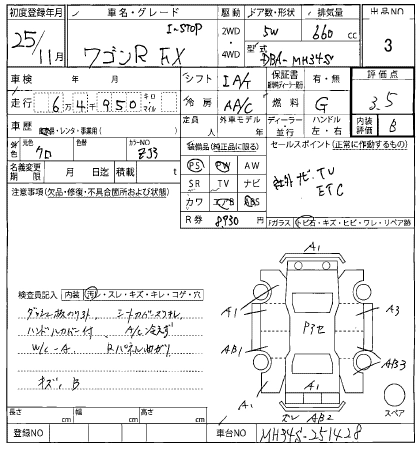 初度登録年月 車名・グレード 駆動 ドア数・形状 排気量 出品NO
25/11月 I-STOP ワゴンR FX 2WD・4WD 5W 660cc 3
型式 DBA-MH34S
車検 年 月 シフト IAT 保証書 有・無 評価点
走行 6万4千950 キロ・マイル 冷房 AAC 燃料 G 3.5
車歴 自家用・レンタ・事業用( ) 定員 人 外車モデル 年 ディーラー・並行 ハンドル 左・右 内装評価 B
外装色 元色 クロ 色替 カラーNO ZJ3
装備品(純正品に限る) セールスポイント(正常に作動するもの)
名義変更期限 月 日迄 積載 t
PS PW AW
SR TV ナビ
カワ エアB ABS
社外ナビ,TV
ETC
注意事項(欠品・修復・不具合箇所および状態)
R券 8930円
Fガラス トビ石・キズ・ヒビ・ワレ・リペア跡
検査員記入 内装 汚レ・スレ・キズ・キレ・コゲ・穴
ハンドルカバー付 A/C冷えず
W/C-A
キズ,B
A1
A1 A3
P3セ
AB1 AB3
A1
A1
AB2
スペア
長さ cm 幅 cm 高さ cm
登録NO 車台NO MH34S-251428